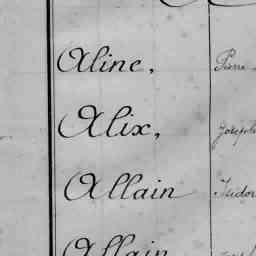 Aline, Pierre
Alix, Joseph
Allain Isidor
Allain